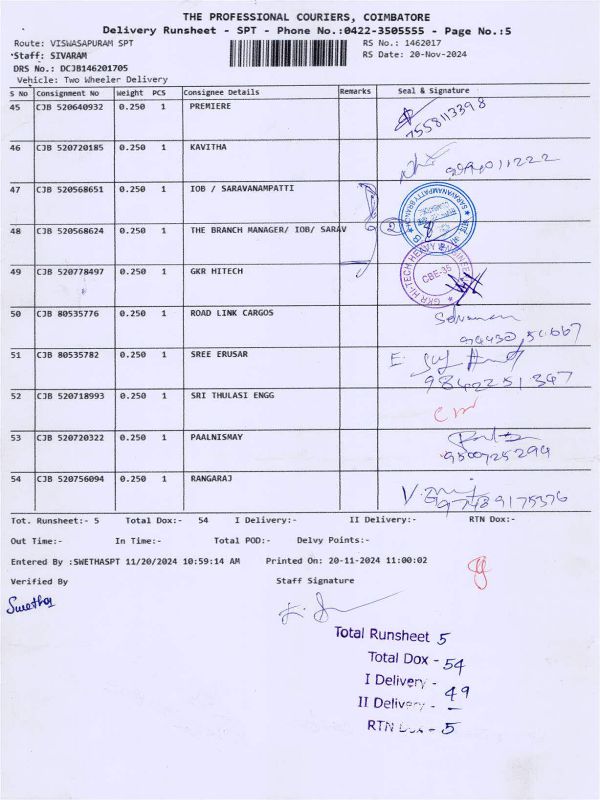 THE PROFESSIONAL COURIERS, COIMBATORE
Delivery Runsheet - SPT - Phone No.:0422-3505555 - Page No.:5
Route: VISWASAPURAM SPT RS No.: 1462017
Staff: SIVARAM RS Date: 20-Nov-2024
DRS No.: DCJB146201705
Vehicle: Two Wheeler Delivery
S No Consignment No Weight PCS Consignee Details Remarks Seal & Signature
45 CJB 520640932 0.250 1 PREMIERE 7558113398
46 CJB 520720185 0.250 1 KAVITHA
47 CJB 520568651 0.250 1 IOB / SARAVANAMPATTI
48 CJB 520568624 0.250 1 THE BRANCH MANAGER/ IOB/ SARAV
49 CJB 520778497 0.250 1 GKR HITECH GKR HI-TECH HEAVY CBE-35
50 CJB 80535776 0.250 1 ROAD LINK CARGOS
51 CJB 80535782 0.250 1 SREE ERUSAR 9842251347
52 CJB 520718993 0.250 1 SRI THULASI ENGG
53 CJB 520720322 0.250 1 PAALNISMAY 9500725294
54 CJB 520756094 0.250 1 RANGARAJ
Tot. Runsheet:- 5 Total Dox:- 54 I Delivery:- II Delivery:- RTN Dox:-
Out Time:- In Time:- Total POD:- Delvy Points:-
Entered By :SWETHASPT 11/20/2024 10:59:14 AM Printed On: 20-11-2024 11:00:02
Verified By Staff Signature
Swetha
Total Runsheet 5
Total Dox - 54
I Delivery - 49
II Delivery - -
RTN Dox - 5